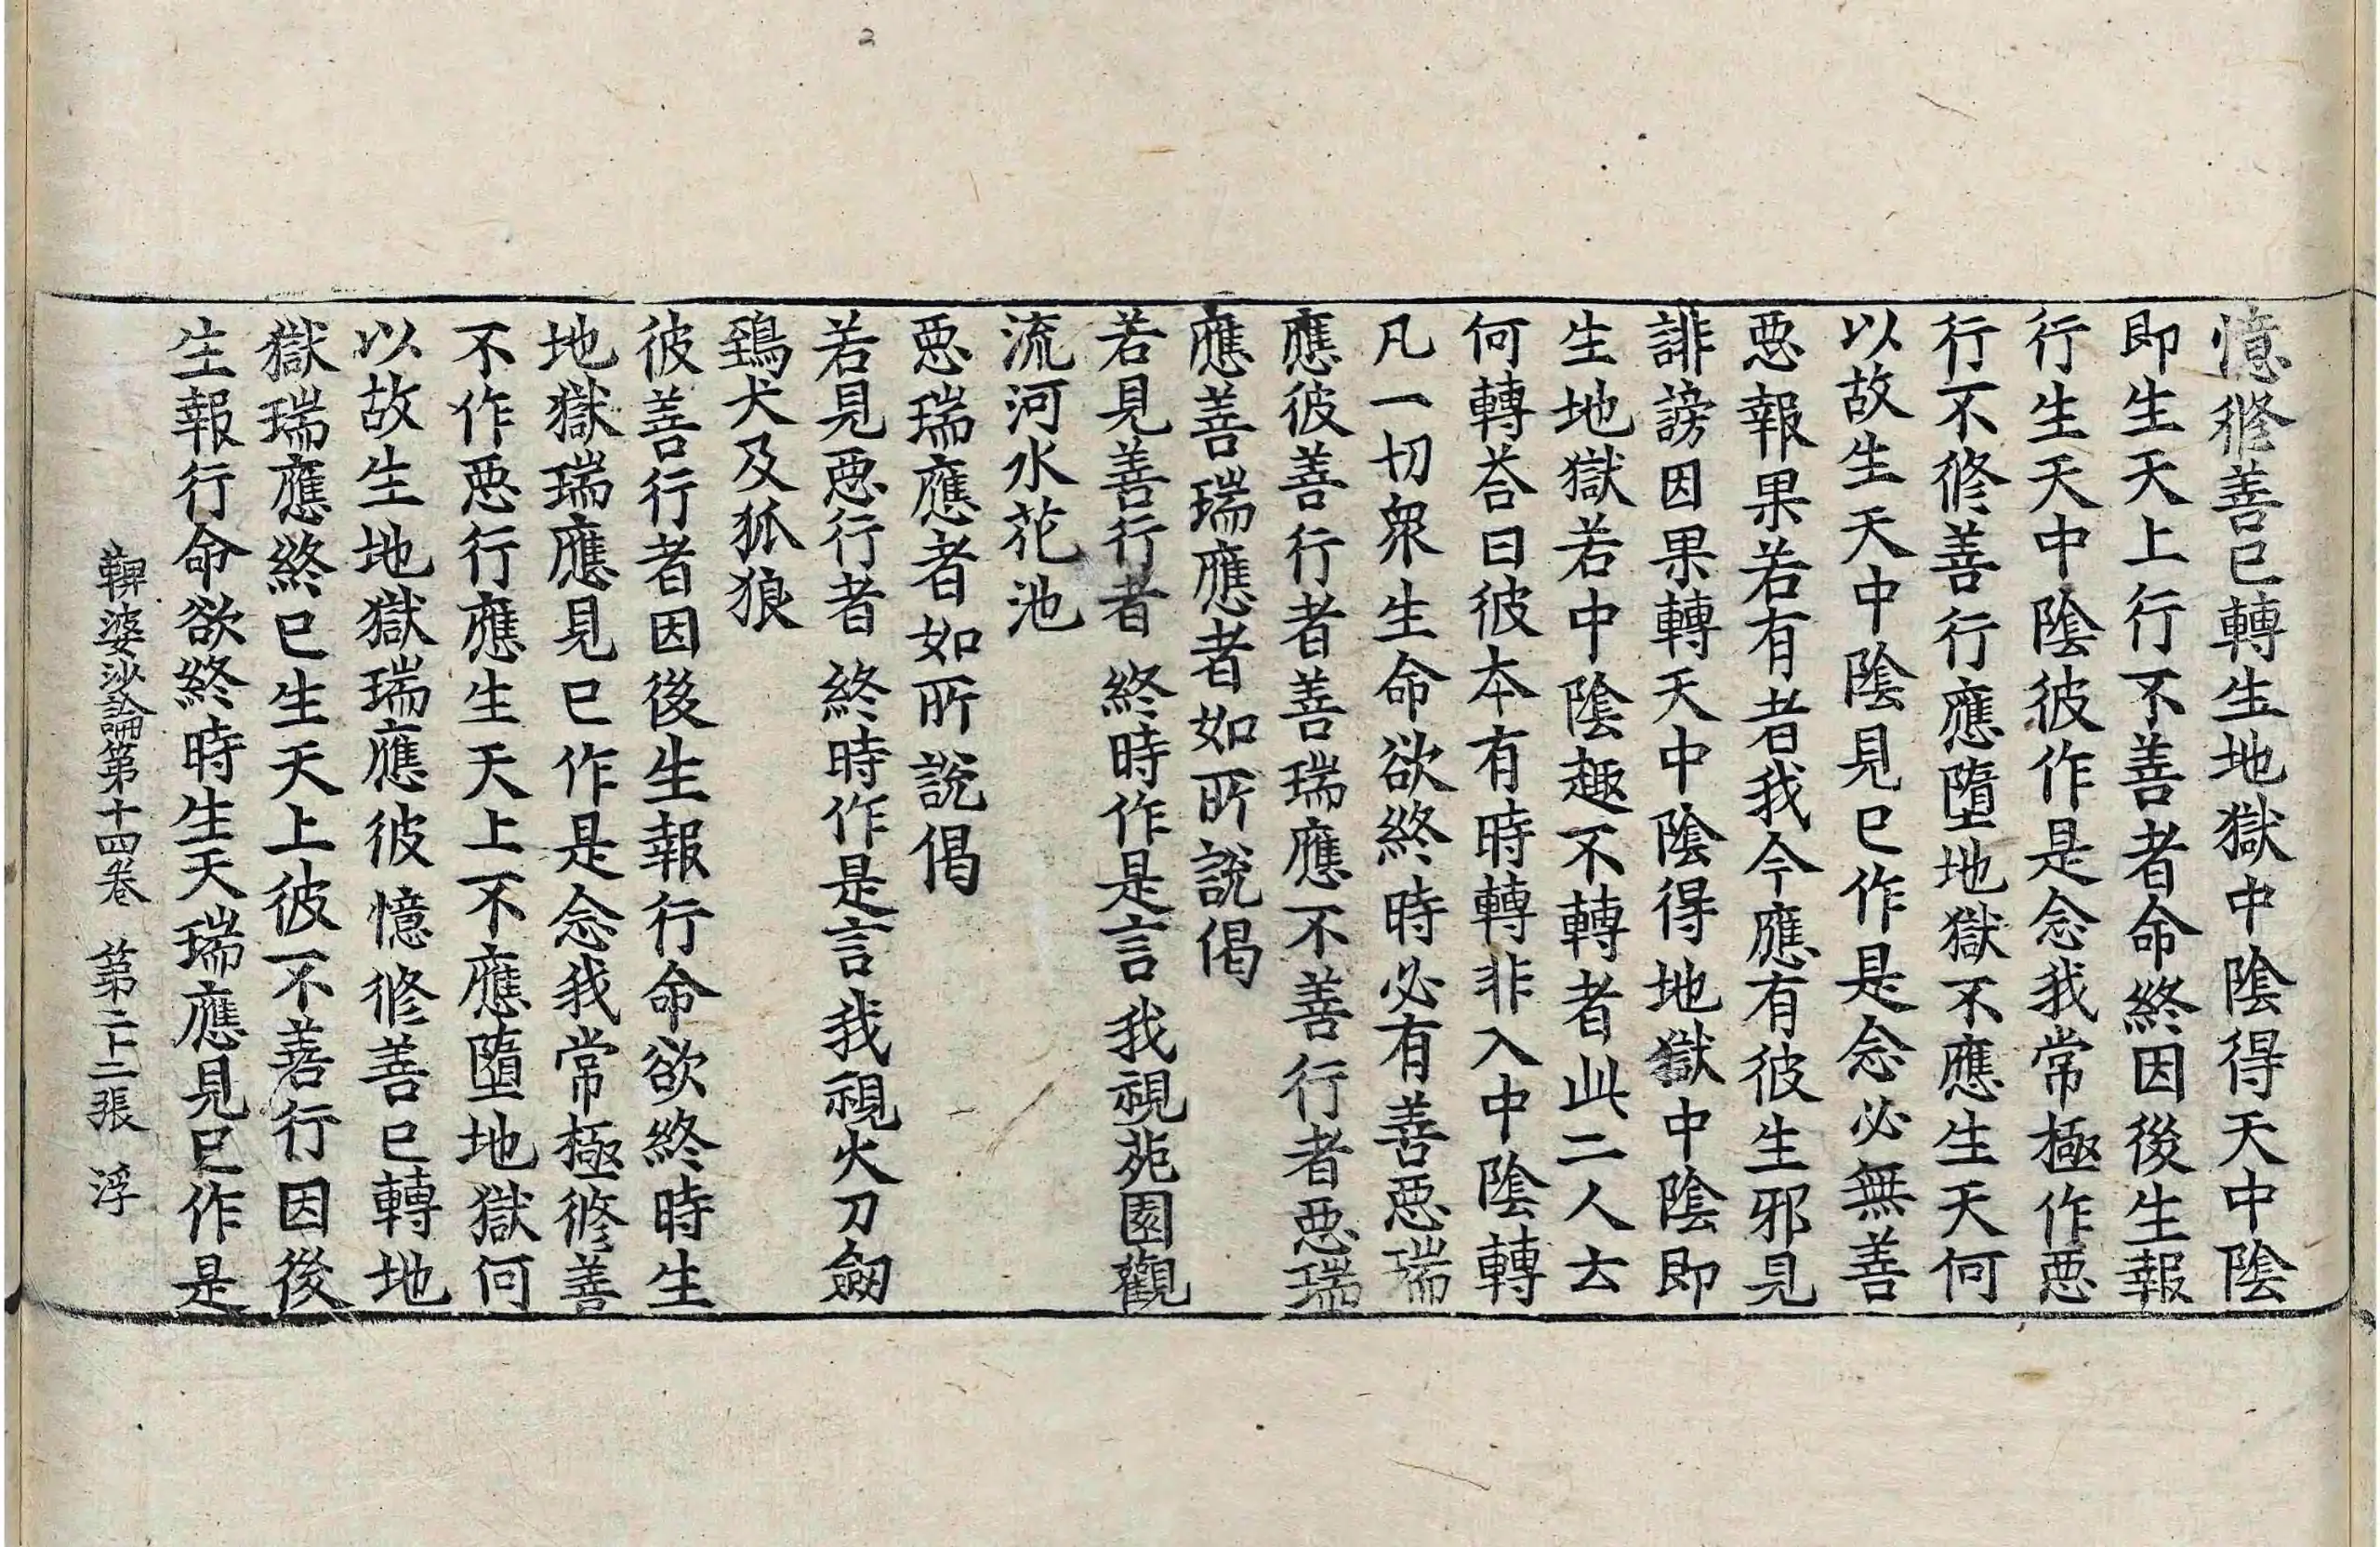 憶修善已轉生地獄中陰得天中陰
即生天上行不善者命終因後生報
行生天中陰彼作是念我常極作惡
行不修善行應墮地獄不應生天何
以故生天中陰見已作是念必無善
惡報果若有者我今應有彼生邪見
誹謗因果轉天中陰得地獄中陰即
生地獄若中陰趣不轉者此二人云
何轉荅曰彼本有時轉非入中陰轉
凡一切衆生命欲終時必有善惡瑞
應彼善行者善瑞應不善行者惡瑞
應善瑞應者如所說偈
若見善行者 終時作是言 我視苑園觀
流河水花池
惡瑞應者如所說偈
若見惡行者 終時作是言 我視火刀劒
鵄犬及狐狼
彼善行者因後生報行命欲終時生
地獄瑞應見已作是念我常極修善
不作惡行應生天上不應墮地獄何
以故生地獄瑞應彼憶修善已轉地
獄瑞應終已生天上彼不善行因後
生報行命欲終時生天瑞應見已作是
鞞婆沙論第十四卷 第二十二張 浮